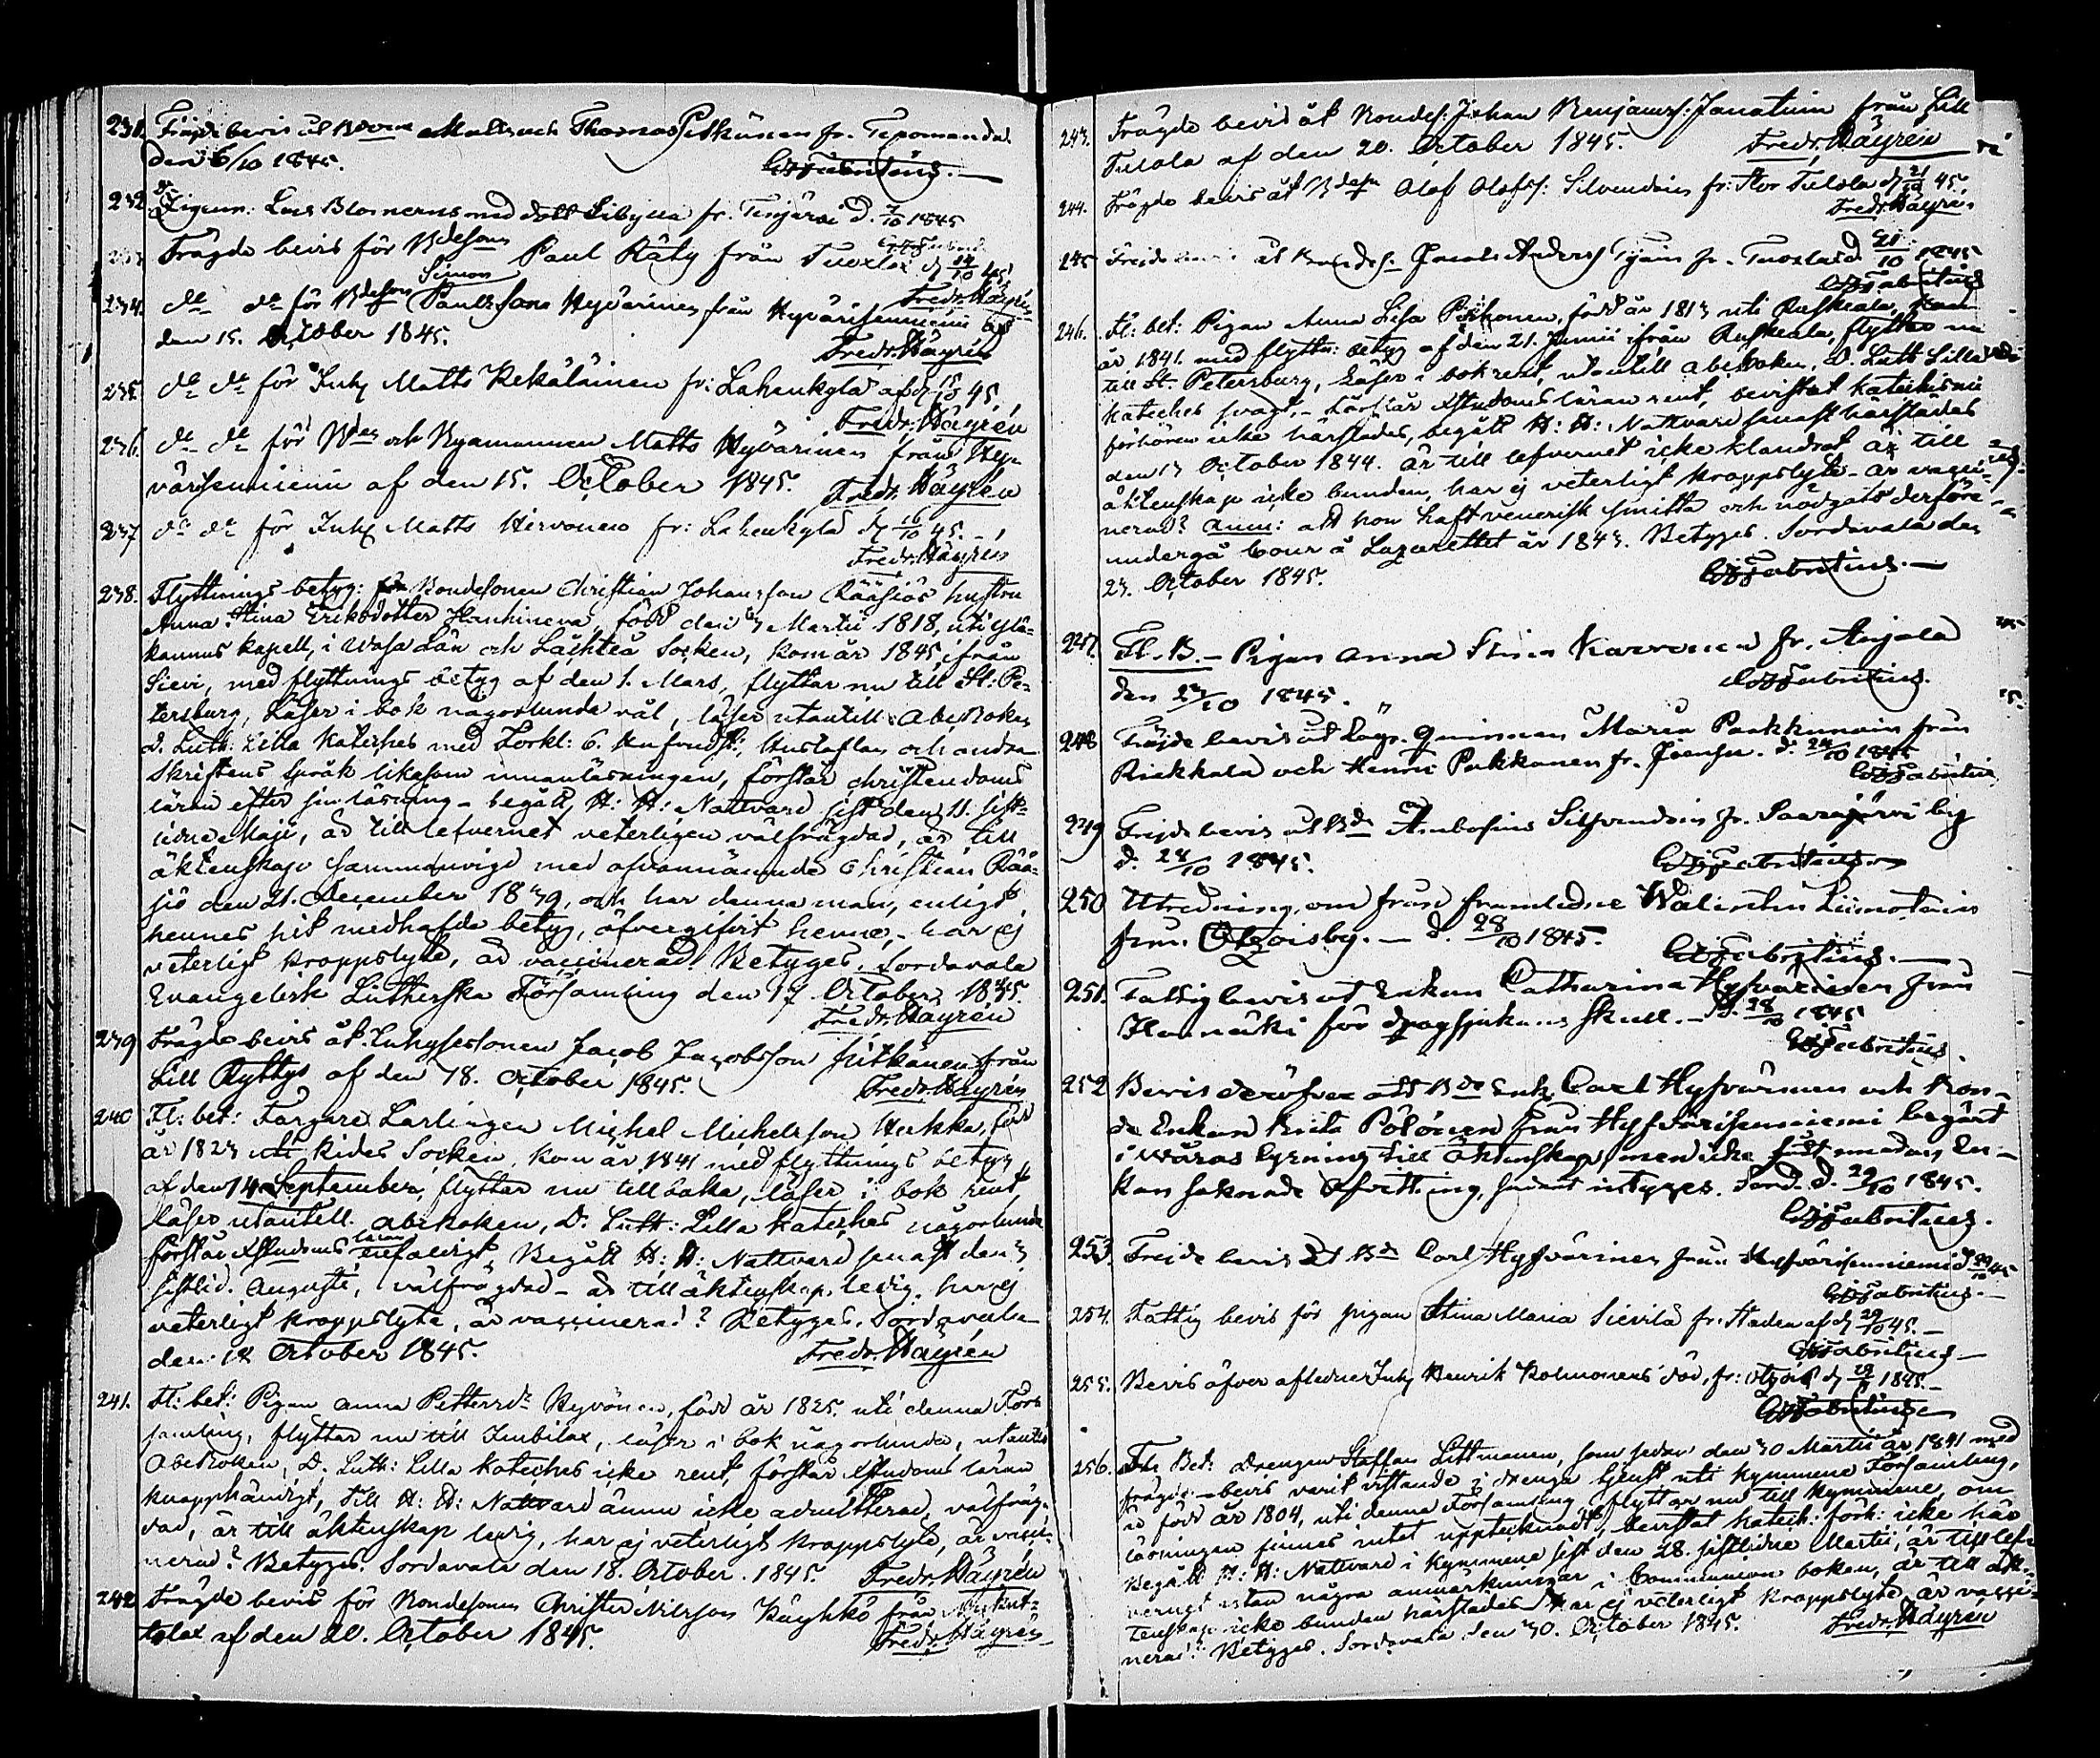 231. Frägdebevis åt Bdesöne Matts och Thomas Pitkänen fr. Tepomendal
den 6/10 1845. C. J. Fabritius.
232. do Zigenn: Lars Blomerus med dott Sibylla fr. Terjärvi d. 7/10 1845
Frägde bevis för Bdesonen Paul Räty från Tuoxlax d. 14/10 45
Fredr. Häyrén
234. do do för Bdesonen Simon Paulsson Hyvärinen från Hyvärisenniemi
den 15. October 1845. Fredr. Häyrén
235. do do för Inhys Matts Kekäläinen fr: Lahenkylä af d. 15/10 45.
Fredr. Häyrén
236. do do för Bden och Nyamannen Matts Hyvärinen från Hy-
värisenniemi af den 15. October 1845. Fredr. Häyrén
237 do do för Inhys Matts Hirvonen fr: Lahenkylä d. 16/10 45.
Fredr. Häyrén
238. Flyttnings betyg: Bondesonen Christian Johansson Rääsiös hustru
Anna Stina Eriksdotter Hanhineva, född den 7 Martii 1818, uti Yli-
kannus kapell, i Wasa Län och Lächteå Socken, kom år 1845, från
Sievi, med flyttnings betyg af den 1. Mars, flyttar nu till St: Pe-
tersburg, Läser i bok någorlunda väl, läser utantill Abeboken
D. Luth: Lilla Kateches med Förkl: 6. Hufvudst:, Hustaflan och andra
Skriftens Språk likasom innanläsningen, förstår christendoms
läran efter sin läsning - begått H: H: Nattvard sist den 11. sist-
lidne Maji, är till lefvernet veterligen välfrägdad, är till
äktenskap sammanvigd med ofvannämnde Christian Rää-
siö den 21. December 1839, och har denna man, enligt
hennes hit medhafde betyg, öfvergifvit henne, - har ej
veterligt kroppslyte, är vaccinerad. Betyges. Sordavala
Evangelisk Lutherska Församling den 17 October 1845.
Fredr. Häyrén
239 Frägde bevis åt Inhysessonen Jacob Jacobsson Pitkänen från
Lill Ryttys af den 18. October 1845. Fredr. Häyrén
240 Fl: bet: Färgare Lärlingen Michel Michelsson Hukka, född
år 1823 uti Kides Socken, kom år 1841 med flyttnings betyg
af den 14 September, flyttar nu tillbaka, läser i bok rent,
läser utantill abeboken, D. Luth: Lilla Kateches någorlunda
förstår Xstendoms läran enfaldigt, Begått H: H: Nattvard senast den 3
sistlid. Augusti, välfrägdad - är till äktenskap ledig, har ej
veterligt kroppslyte, är vaccinerad? Betyges. Sordavala
den 18 October 1845. Fredr. Häyrén
241. Fl: bet: Pigan Anna Pettersdr Hyvönen, född år 1825. uti denna För-
samling, flyttar nu till Imbilax, läser i bok någorlunda, utantill
Abeboken, D. Luth: Lilla Kateches icke rent, förstår Xstendoms läran
knapphändigt, till H: H: Nattvard ännu icke admitterad, välfräg-
dad, är till äktenskap ledig, har ej veterligt kroppslyte, är vacci-
nerad? Betyges. Sordavala den 18. October. 1845. Fredr. Häyrén
242 Frägde bevis för Bondesonen Christer Nilsson Käyhkö från
af den 20. October 1845. Fredr. Häyrén
243. Frägde bevis åt Bondes: Johan Benjamins: Janatuin från Lill
Tulola af den 20. October 1845. Fredr. Häyrén
244. Frägde bevis åt Bdesn Olof Olofss: Silvendoin fr: Stor Tulola d. 21/10 45.
Fredr. Häyrén
245 Frejdebevis åt Bondes. Jacob Anders Tyäin fr. Tuoxlax d. 21/10 1845
C. J. Fabritius
246. Fl: bet: Pigan Anna Lisa Pirhonen, född år 1813 uti Ruskeala, kom
år 1841. med flyttn: betyg af den 21. Junii ifrån Ruskeala, flyttar nu
till St. Petersburg, Läser i bok rent, utantill abeboken, D. Luth Lilla
Kateches svagt. - Förstår Xstendoms läran rent, bevistat katechismi
förhören icke härstädes, begått H: H: Nattvard senast härstädes
den 13 October 1844. är till lefvernet icke klandrat är till
äktenskap icke bunden, har ej veterligt kroppslyte - är vacci-
nerad? Anm: att hon haft venerisk smitta och nödgats derföre
undergå Cour å Lazarettet år 1843. Betyges. Sordavala den
23. October 1845. C. J. Fabritius.
247. Fl. B. - Pigan Anna Stina Karvonen fr. Anjala
den 23/10 1845. C. J. Fabritius.
248 Fräjdebevis åt Qvinnan Maria Paakkunain från
Riekkala och Henric Pakkanen fr. Joensu. d. 24/10 1845
C. J. Fabritius
249 Frejdebevis åt Bde Ambrosius Silfvendoin fr. Saarajärvi by
d. 28/10 1845. C. J. Fabritius
250 Utredning om framledne Walentin Liimatain
från Otzoisby. - d. 28/10 1845. C. J. Fabritius.
251. Fattig bevis åt Enkan Catharina Hyfvärinen från
för skull. - d. 28/10 1845
C. J. Fabritius
252 Bevis deröfver att Bde Enk. Carl Hyfvärinen och Bon-
de Enkan Brita Pölönen från Hyfvärisenniemi begärt
i våras lysning till Äktenskap, men icke fått emedan En-
kan saknade Afvittring, hvilket intyges. Sord. d. 29/10 1845.
C. J. Fabritius.
253. Frejde bevis åt Bde Carl Hyfvärinen från Hyfvärisenniemi d. 29/10 45
C. J. Fabritius.
254. Fattig bevis för pigan Stina Maria Sievilä fr: Staden af d. 29/10 45. -
C. J. Fabritius
255. Bevis öfver aflidne Inhs Henrik Kolmonens död, fr: Otzois d. 1845. -
C. J. Fabritius
256. Fl: Bet: Drengen Staffan Littmanen, som sedan den 30 Martii år 1841 med
frägde-bevis varit vistande i drenge tjenst uti Kymmene Församling,
är född år 1804, uti denna Församling, flyttar nu till Kymmene, om
läsningen finnes intet upptecknadt, bevistat Katech: förh: icke här
Begått H: H: Nattvard i Kymmene sist den 28. sistlidne Martii, är till lef-
vernet utan några anmärkningar i Communion boken, är till äk-
tenskap icke bunden härstädes har ej veterligt kroppslyte, är vacci-
nerad? Betyges. Sordavala den 30. October 1845. Fredr. Häyrén